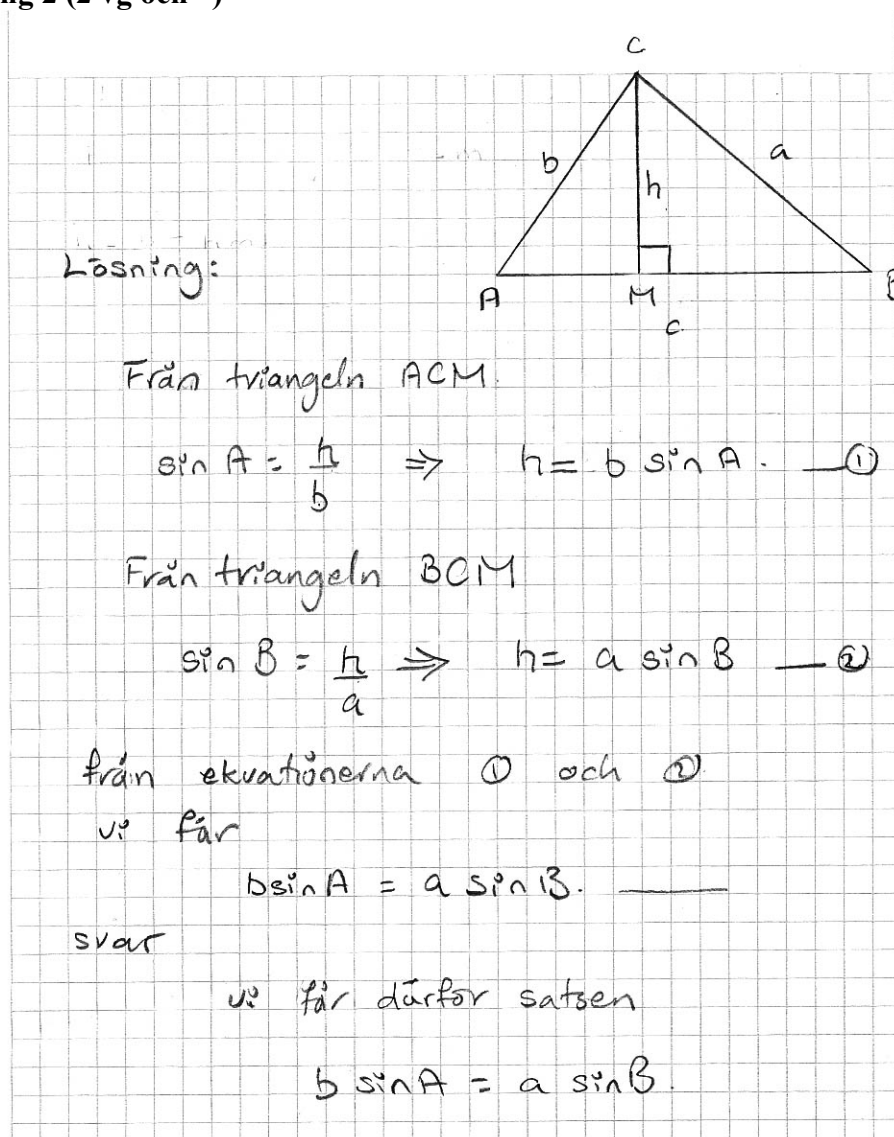 ng 2 (2 vg och
C
b
a
h
A
M
B
c
Lösning:
Från triangeln ACM.
sin A = h/b ⇒ h = b sin A. — ①
Från triangeln BCM
sin B = h/a ⇒ h = a sin B — ②
från ekvationerna ① och ②
vi får
b sin A = a sin B. —
svar
vi får därför satsen
b sin A = a sin B.